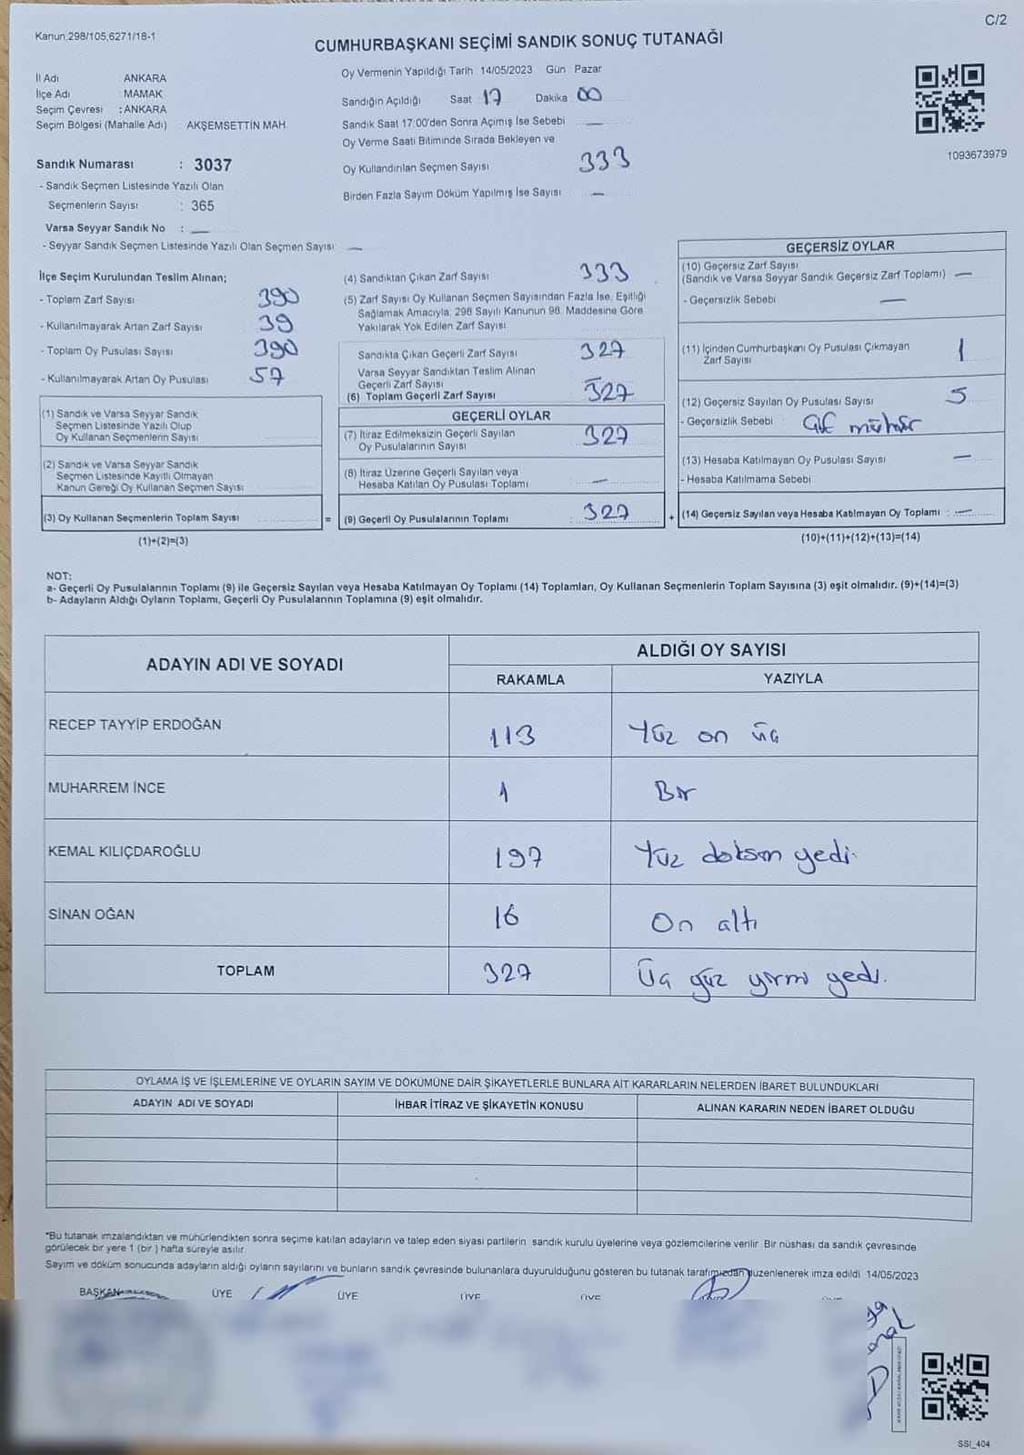 C/2
Kanun 298/105,6271/18-1
CUMHURBAŞKANI SEÇİMİ SANDIK SONUÇ TUTANAĞI
İl Adı ANKARA
İlçe Adı MAMAK
Seçim Çevresi : ANKARA
Seçim Bölgesi (Mahalle Adı) AKŞEMSETTİN MAH.
Sandık Numarası : 3037
- Sandık Seçmen Listesinde Yazılı Olan
Seçmenlerin Sayısı : 365
Varsa Seyyar Sandık No : —
- Seyyar Sandık Seçmen Listesinde Yazılı Olan Seçmen Sayısı —
Oy Vermenin Yapıldığı Tarih 14/05/2023 Gün Pazar
Sandığın Açıldığı Saat 17 Dakika 00
Sandık Saat 17:00'den Sonra Açımış İse Sebebi —
Oy Verme Saati Bitiminde Sırada Bekleyen ve
Oy Kullandırılan Seçmen Sayısı 333
Birden Fazla Sayım Döküm Yapılmış İse Sayısı —
1093673979
İlçe Seçim Kurulundan Teslim Alınan;
- Toplam Zarf Sayısı 390
- Kullanılmayarak Artan Zarf Sayısı 39
- Toplam Oy Pusulası Sayısı 390
- Kullanılmayarak Artan Oy Pusulası 57
(1) Sandık ve Varsa Seyyar Sandık
Seçmen Listesinde Yazılı Olup
Oy Kullanan Seçmenlerin Sayısı
(2) Sandık ve Varsa Seyyar Sandık
Seçmen Listesinde Kayıtlı Olmayan
Kanun Gereği Oy Kullanan Seçmen Sayısı
(3) Oy Kullanan Seçmenlerin Toplam Sayısı =
(1)+(2)=(3)
(4) Sandıktan Çıkan Zarf Sayısı 333
(5) Zarf Sayısı Oy Kullanan Seçmen Sayısından Fazla İse, Eşitliği
Sağlamak Amacıyla, 298 Sayılı Kanunun 98. Maddesine Göre
Yakılarak Yok Edilen Zarf Sayısı
Sandıkta Çıkan Geçerli Zarf Sayısı 327
Varsa Seyyar Sandıktan Teslim Alınan
Geçerli Zarf Sayısı —
(6) Toplam Geçerli Zarf Sayısı 327
GEÇERLİ OYLAR
(7) İtiraz Edilmeksizin Geçerli Sayılan
Oy Pusulalarının Sayısı 327
(8) İtiraz Üzerine Geçerli Sayılan veya
Hesaba Katılan Oy Pusulası Toplamı —
(9) Geçerli Oy Pusulalarının Toplamı : 327 +
GEÇERSİZ OYLAR
(10) Geçersiz Zarf Sayısı
(Sandık ve Varsa Seyyar Sandık Geçersiz Zarf Toplamı) —
- Geçersizlik Sebebi —
(11) İçinden Cumhurbaşkanı Oy Pusulası Çıkmayan
Zarf Sayısı 1
(12) Geçersiz Sayılan Oy Pusulası Sayısı 5
- Geçersizlik Sebebi Çift mühür
(13) Hesaba Katılmayan Oy Pusulası Sayısı —
- Hesaba Katılmama Sebebi
(14) Geçersiz Sayılan veya Hesaba Katılmayan Oy Toplamı : —
(10)+(11)+(12)+(13)=(14)
NOT:
a- Geçerli Oy Pusulalarının Toplamı (9) ile Geçersiz Sayılan veya Hesaba Katılmayan Oy Toplamı (14) Toplamları, Oy Kullanan Seçmenlerin Toplam Sayısına (3) eşit olmalıdır. (9)+(14)=(3)
b- Adayların Aldığı Oyların Toplamı, Geçerli Oy Pusulalarının Toplamına (9) eşit olmalıdır.
ADAYIN ADI VE SOYADI
ALDIĞI OY SAYISI
RAKAMLA YAZIYLA
RECEP TAYYİP ERDOĞAN 113 Yüz on üç
MUHARREM İNCE 1 Bir
KEMAL KILIÇDAROĞLU 197 Yüz doksan yedi
SİNAN OĞAN 16 On altı
TOPLAM 327 Üç yüz yirmi yedi.
OYLAMA İŞ VE İŞLEMLERİNE VE OYLARIN SAYIM VE DÖKÜMÜNE DAİR ŞİKAYETLERLE BUNLARA AİT KARARLARIN NELERDEN İBARET BULUNDUKLARI
ADAYIN ADI VE SOYADI İHBAR İTİRAZ VE ŞİKAYETİN KONUSU ALINAN KARARIN NEDEN İBARET OLDUĞU
*Bu tutanak imzalandıktan ve mühürlendikten sonra seçime katılan adayların ve talep eden siyasi partilerin sandık kurulu üyelerine veya gözlemcilerine verilir. Bir nüshası da sandık çevresinde
görülecek bir yere 1 (bir) hafta süreyle asılır.
Sayım ve döküm sonucunda adayların aldığı oyların sayılarını ve bunların sandık çevresinde bulunanlara duyurulduğunu gösteren bu tutanak tarafımızdan düzenlenerek imza edildi 14/05/2023
BAŞKAN ÜYE ÜYE ÜYE ÜYE
SSI_404